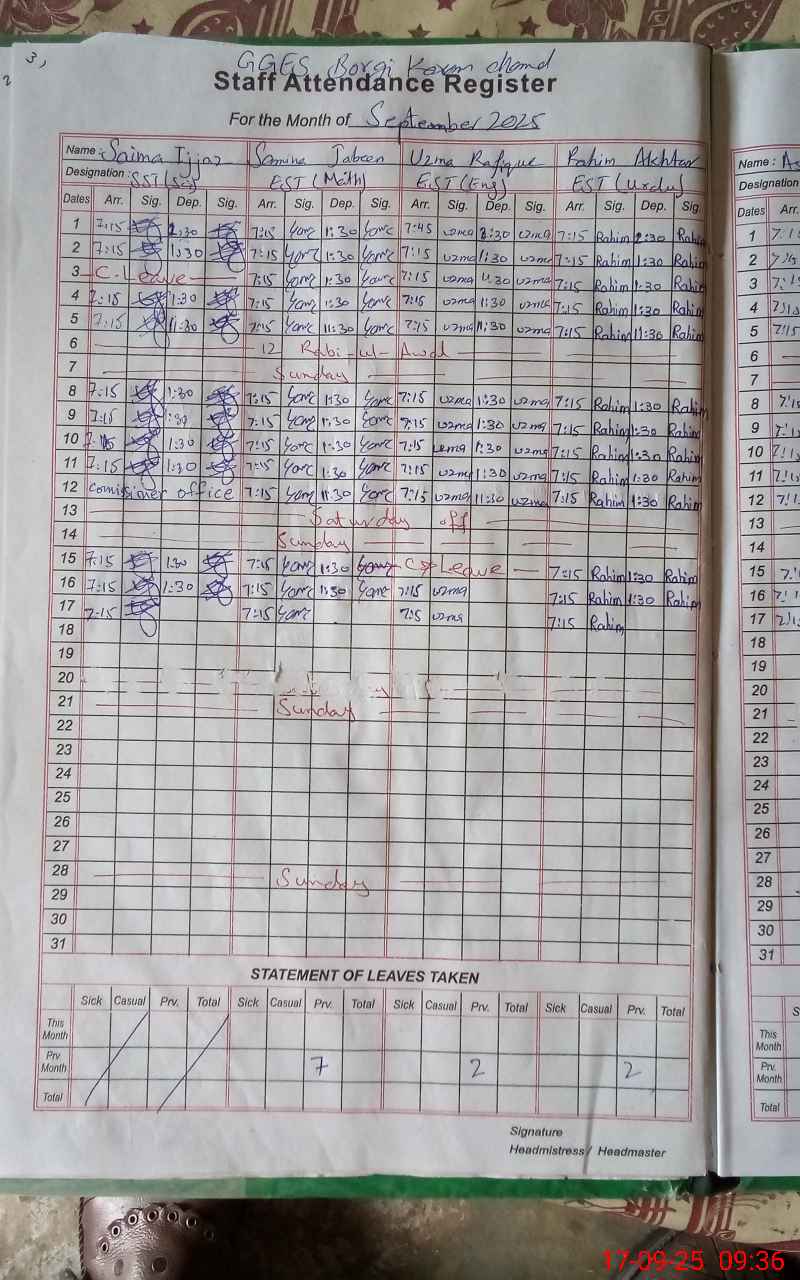 3,
2
GGES Borgi Karam chand
Staff Attendance Register
For the Month of September 2025
Name : Saima Ijjaz Samina Jabeen Uzma Rafique Rahim Akhtar
Designation : SST (Sci) EST (Math) EST (Eng) EST (Urdu)
Dates Arr. Sig. Dep. Sig. Arr. Sig. Dep. Sig. Arr. Sig. Dep. Sig. Arr. Sig. Dep. Sig.
1 7:15 2:30 7:15 1:30 7:45 uzma 2:30 uzma 7:15 Rahim 2:30 Rahim
2 7:15 1:30 7:15 1:30 7:15 uzma 1:30 uzma 7:15 Rahim 1:30 Rahim
3 C. Leave 7:15 1:30 7:15 uzma 1:30 uzma 7:15 Rahim 1:30 Rahim
4 7:15 1:30 7:15 1:30 7:15 uzma 1:30 uzma 7:15 Rahim 1:30 Rahim
5 7:15 11:30 7:15 11:30 7:15 uzma 11:30 uzma 7:15 Rahim 11:30 Rahim
6 12 Rabi-ul-Awal
7 Sunday
8 7:15 1:30 7:15 1:30 7:15 uzma 1:30 uzma 7:15 Rahim 1:30 Rahim
9 7:15 1:30 7:15 1:30 7:15 uzma 1:30 uzma 7:15 Rahim 1:30 Rahim
10 7:15 1:30 7:15 1:30 7:15 uzma 1:30 uzma 7:15 Rahim 1:30 Rahim
11 7:15 1:30 7:15 1:30 7:15 uzma 1:30 uzma 7:15 Rahim 1:30 Rahim
12 comissioner office 7:15 11:30 7:15 uzma 11:30 uzma 7:15 Rahim 1:30 Rahim
13 Saturday off
14 Sunday
15 7:15 1:30 7:15 1:30 C Leave 7:15 Rahim 1:30 Rahim
16 7:15 1:30 7:15 1:30 7:15 uzma 7:15 Rahim 1:30 Rahim
17 7:15 7:15 7:5 uzma 7:15 Rahim
18
19
20
21 Sunday
22
23
24
25
26
27
28 Sunday
29
30
31
STATEMENT OF LEAVES TAKEN
Sick Casual Prv. Total Sick Casual Prv. Total Sick Casual Prv. Total Sick Casual Prv. Total
This Month
Prv Month 7 2 2
Total
Signature
Headmistress / Headmaster
Name : As
Designation
Dates Arr.
1 7:1
2 7:15
3 7:1
4 7:1
5 7:15
6
7
8 7:1
9 7:1
10 7:1
11 7:1
12 7:1
13
14
15 7:1
16 7:1
17 7:1
18
19
20
21
22
23
24
25
26
27
28
29
30
31
S
This Month
Prv. Month
Total
17-09-25 09:36